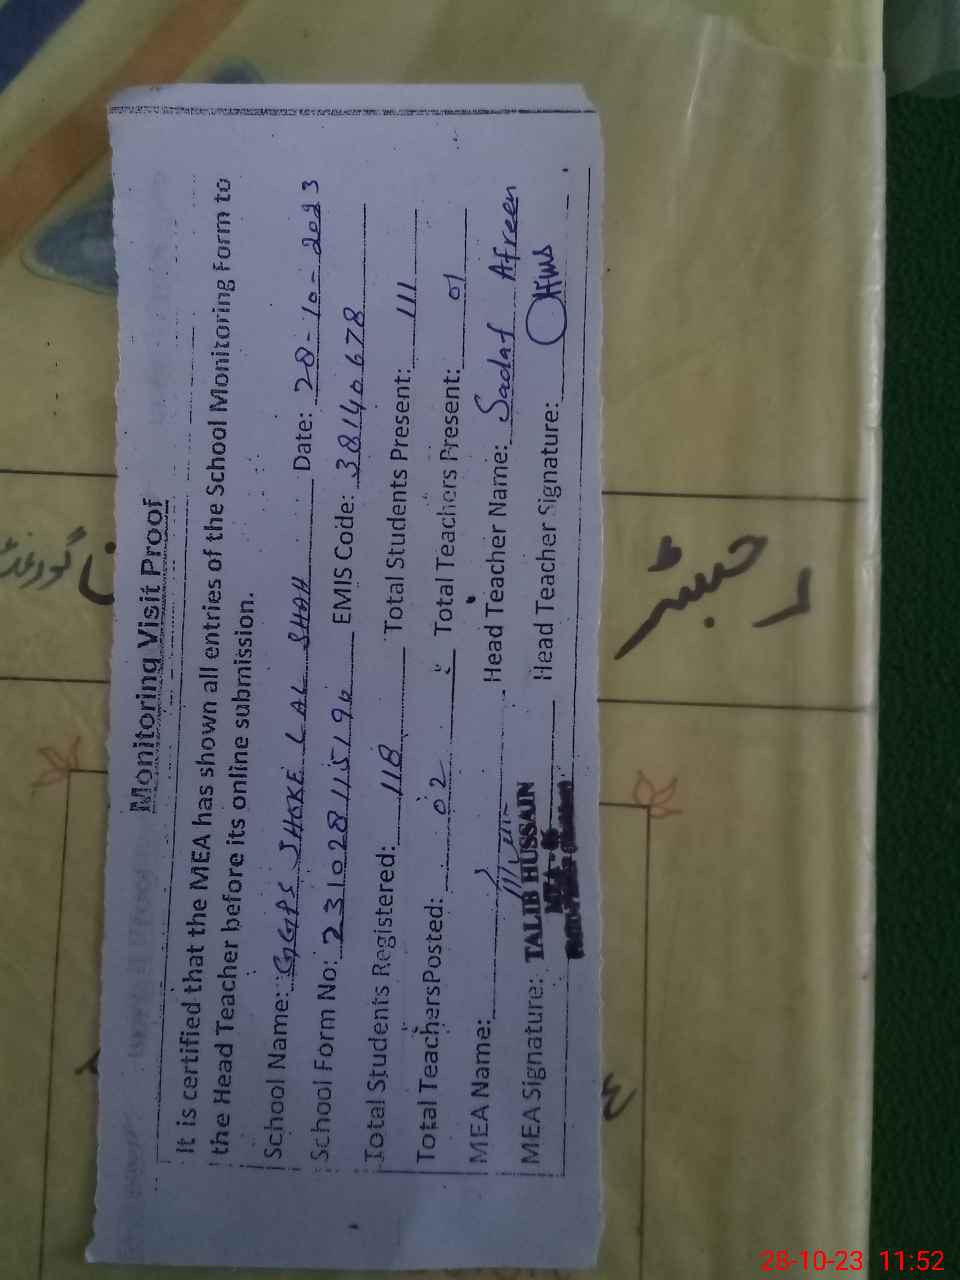 Monitoring Visit Proof
It is certified that the MEA has shown all entries of the School Monitoring Form to
the Head Teacher before its online submission.
School Name: GGPS JHOKE LAL SHAH Date: 28-10-2023
School Form No: 231028115196 EMIS Code: 38140678
Total Students Registered: 118 Total Students Present: 111
Total Teachers Posted: 02 Total Teachers Present: 01
MEA Name: Head Teacher Name: Sadaf Afreen
MEA Signature: TALIB HUSSAIN Head Teacher Signature:
MEA -
رجسٹر
28-10-23 11:52